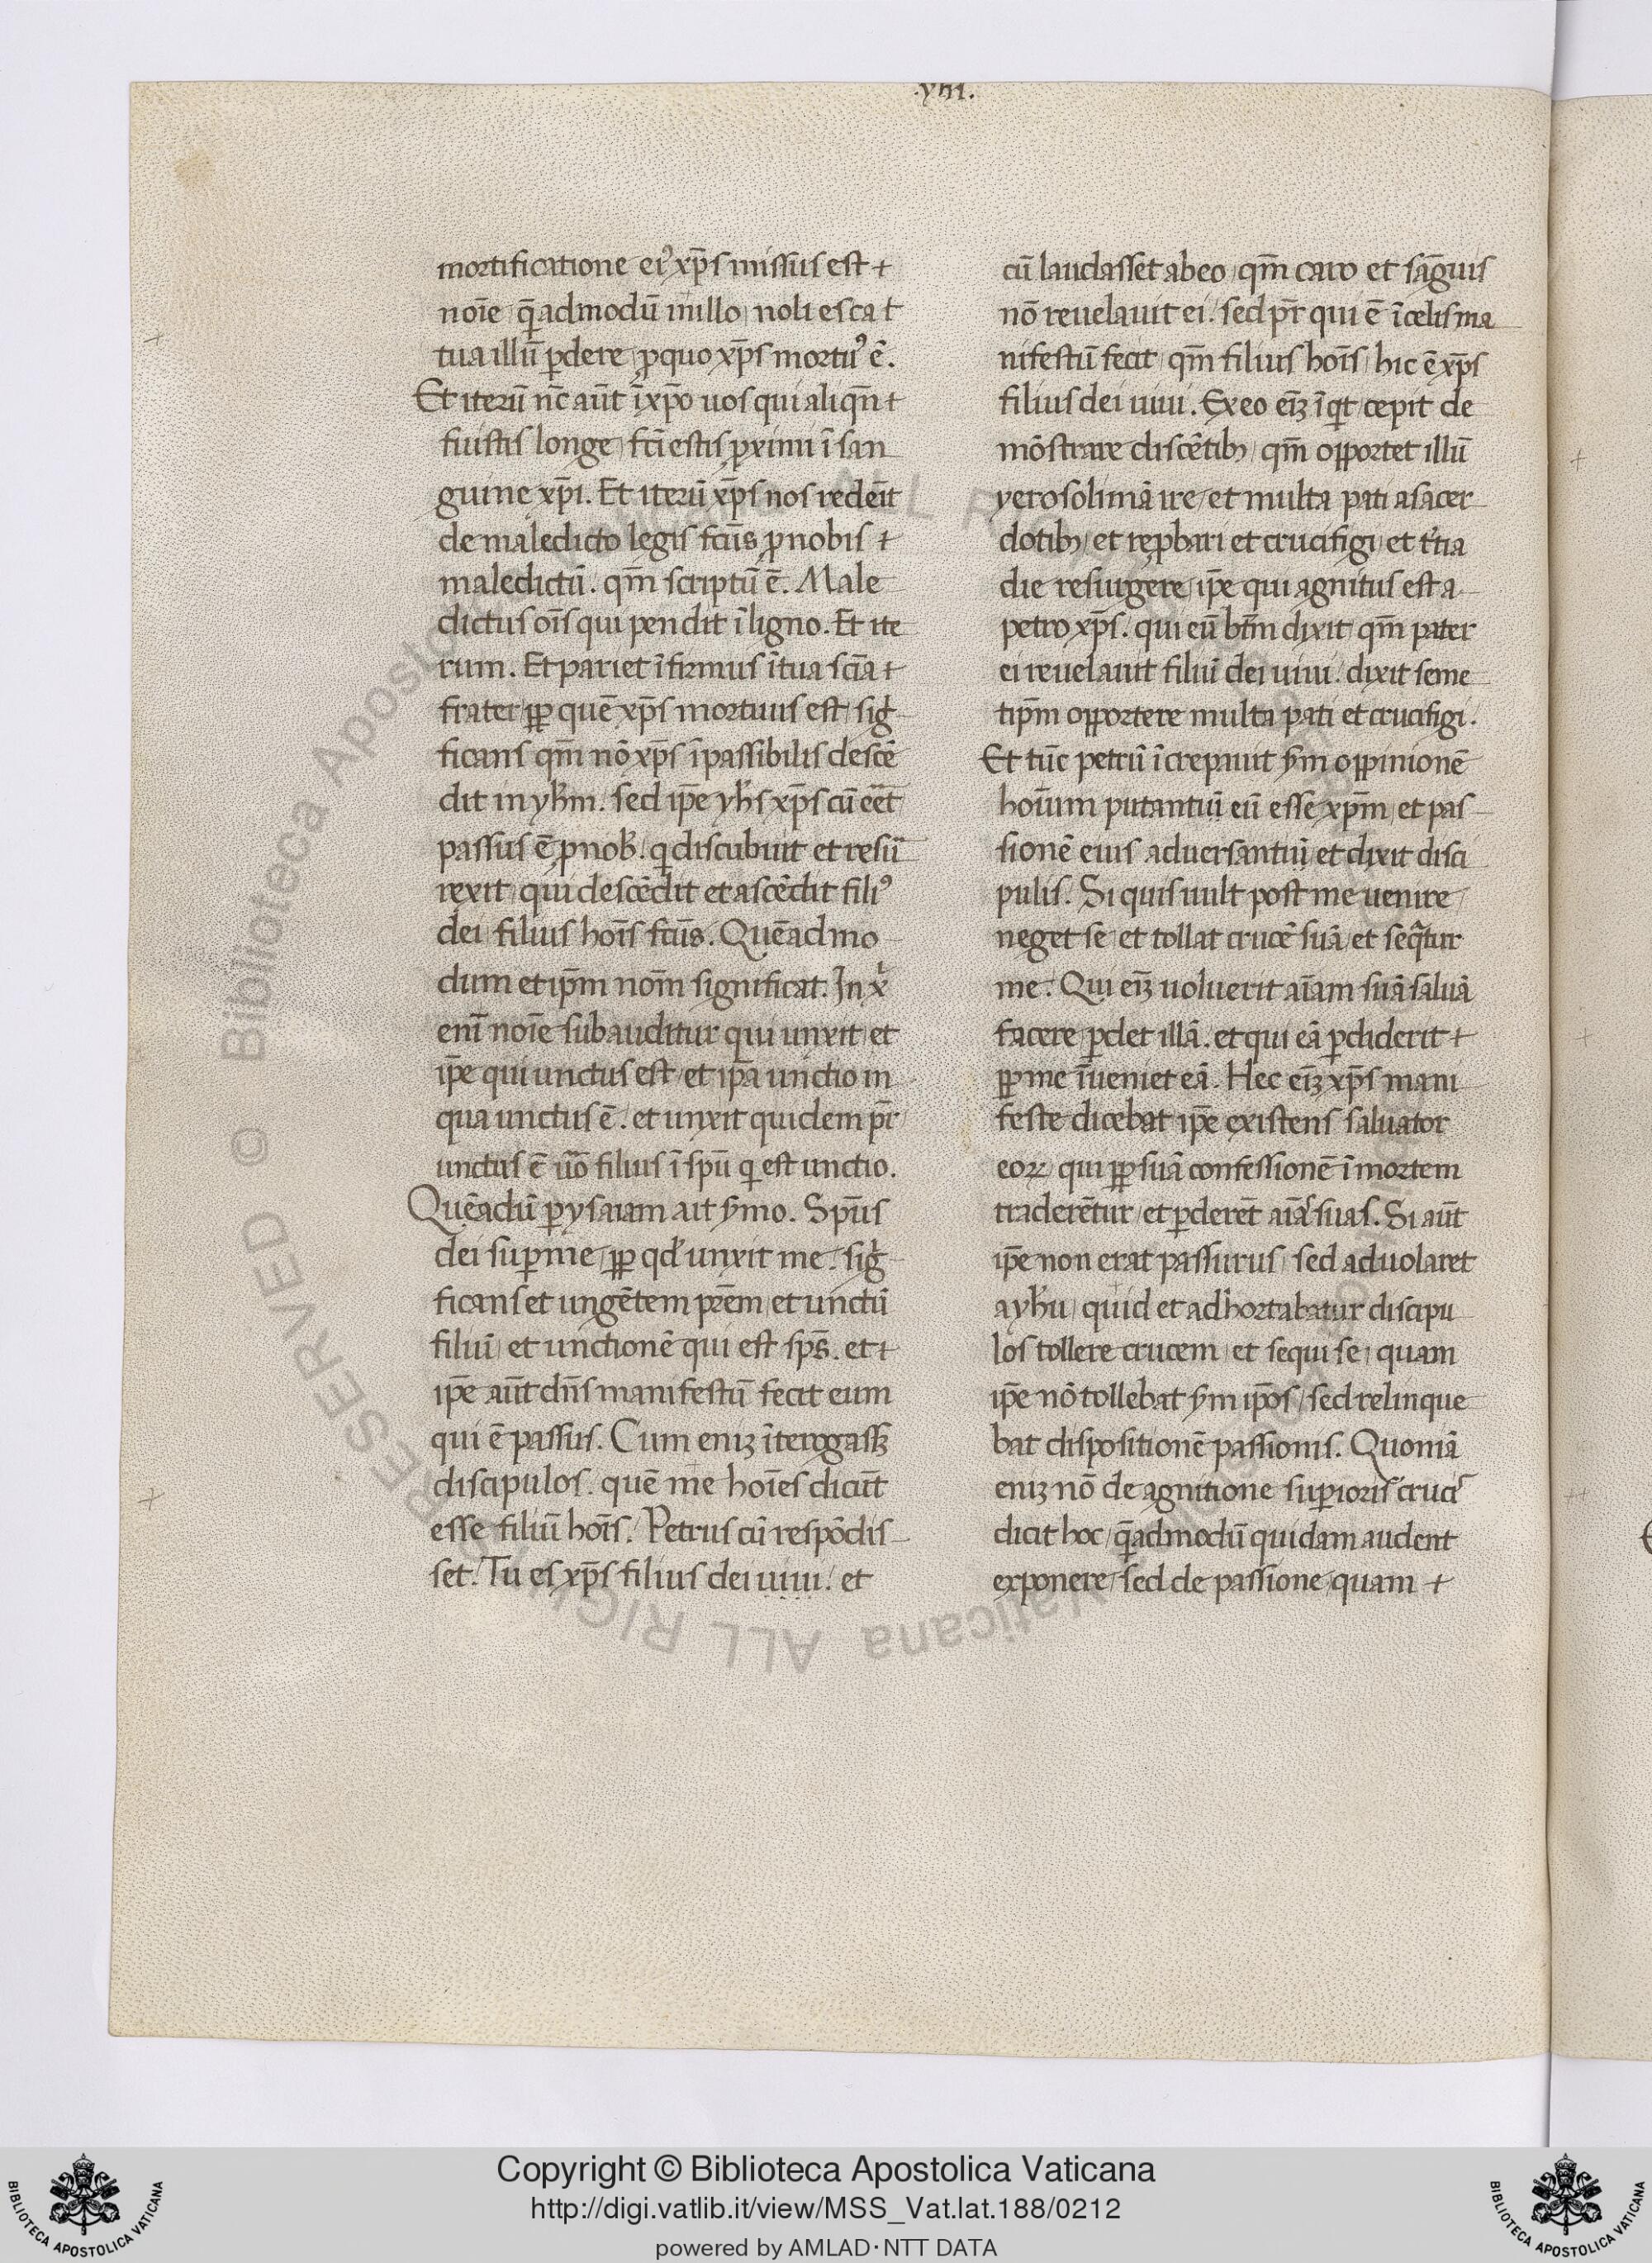 .yiii.
mortificatione ei᾽ xp̄s missus est +
noīe q̄admodū in illo noli esca t
tua illū ꝑdere ꝓ quo xp̄s mortu᾽ ē.
Et iterū nc̄ aūt ī xp̄o uos qui aliqn̄ +
fuistis longe fc̄i estis ꝓximi ī san
guine xp̄i. Et iterū xp̄s nos redeīt
de maledicto legis fcūs ꝓ nobis +
maledictū. qm̄ scriptū ē. Male
dictus oīs qui pendit ī ligno. Et ite
rum. Et pariet īfirmus ī tua scīa +
frater ꝓp quē xp̄s mortuus est sig̍
ficans qm̄ nō xp̄s īpassibilis descē
dit in yhm̄. sed ip̄e yhs̄ xp̄s cū eēt
passus ē ꝓ nob̄. q̍ discubuit et resū
rexit qui descēdit et ascēdit fili᾽
dei filius hoīs fcūs. Quēadmo
dum et ip̄m nom̄ significat. In xi
enī noīe subauditur qui unxit et
ip̄e qui unctus est et ip̄a unctio in
qua unctus ē. et unxit quidem pr̄
unctus ē uō filius ī spū q̍ est unctio.
Quēadū ꝑ ysaiam ait s̄mo. Spūs
dei suꝑ me ꝓp qd̄ unxit me. sig̍
ficans et ungētem prēm et unctū
filiū et unctionē qui est sps̄. et +
ip̄e aūt dn̄s manifestū fecit eum
qui ē passus. Cum enīꝫ īterogassꝫ
discipulos. quē me hoīes dicūt
esse filiū hoīs. Petrus cū respōdis
set. Tu es xp̄s filius dei uiui. et
cū laudasset ab eo qm̄ caro et sāguis
nō reuelauit ei. sed pr̄ qui ē ī celis ma
nifestū fecit qm̄ filius hoīs hic ē xp̄s
filius dei uiui. Ex eo eīꝫ īqt cepit de
mōstrare discētibꝫ qm̄ opportet illū
yerosolimā ire et multa pati a sacer
dotibꝫ et reꝓbari et crucifigi et t̍tia
die resurgere ip̄e qui agnitus est a
petro xp̄s. qui eū bt̄m dixit qm̄ pater
ei reuelauit filiū dei uiui. dixit seme
tip̄m opportere multa pati et crucifigi.
Et tūc petrū īcrepuit s̄m oppinionē
hoīum putantiū eū esse xp̄m et pas
sionē eius aduersantiū et dixit disci
pulis. Si quis uult post me uenire
neget se et tollat crucē suā et seq̄tur
me. Qui eīꝫ uoluerit aīam suā saluā
facere ꝑdet illā. et qui eā ꝑdiderit +
ꝓp me īueniet eā. Hec eīꝫ xp̄s mani
feste dicebat ip̄e existens saluator
eoꝝ qui ꝓp suā confessionē ī mortem
traderētur et ꝑderēt aīas suas. Si aūt
ip̄e non erat passurus sed aduolaret
a yhu̍ quid et adhortabatur discipu
los tollere crucem et sequi se quam
ip̄e nō tollebat s̄m ip̄os sed relinque
bat dispositionē passionis. Quoniā
enīꝫ nō de agnitione suꝑioris cruc̍
dicit hoc q̄admodū quidam audent
exponere sed de passione quam +
Copyright © Biblioteca Apostolica Vaticana
http://digi.vatlib.it/view/MSS_Vat.lat.188/0212
powered by AMLAD·NTT DATA